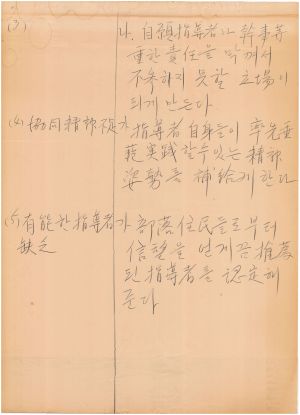 (3)
나. 自願指導者나 幹事등
重한 責任을 막겨서
不參하지 못할 立場이
되게 만든다
(4) 協同精神 指導者 自身들이 率先垂
範 実践할 수 있는 精神
姿勢를 補給케 한다
(5) 有能한 指導者가 部落住民들로부터
缺乏 信望을 얻게끔 推薦
된 指導者를 認定해
준다